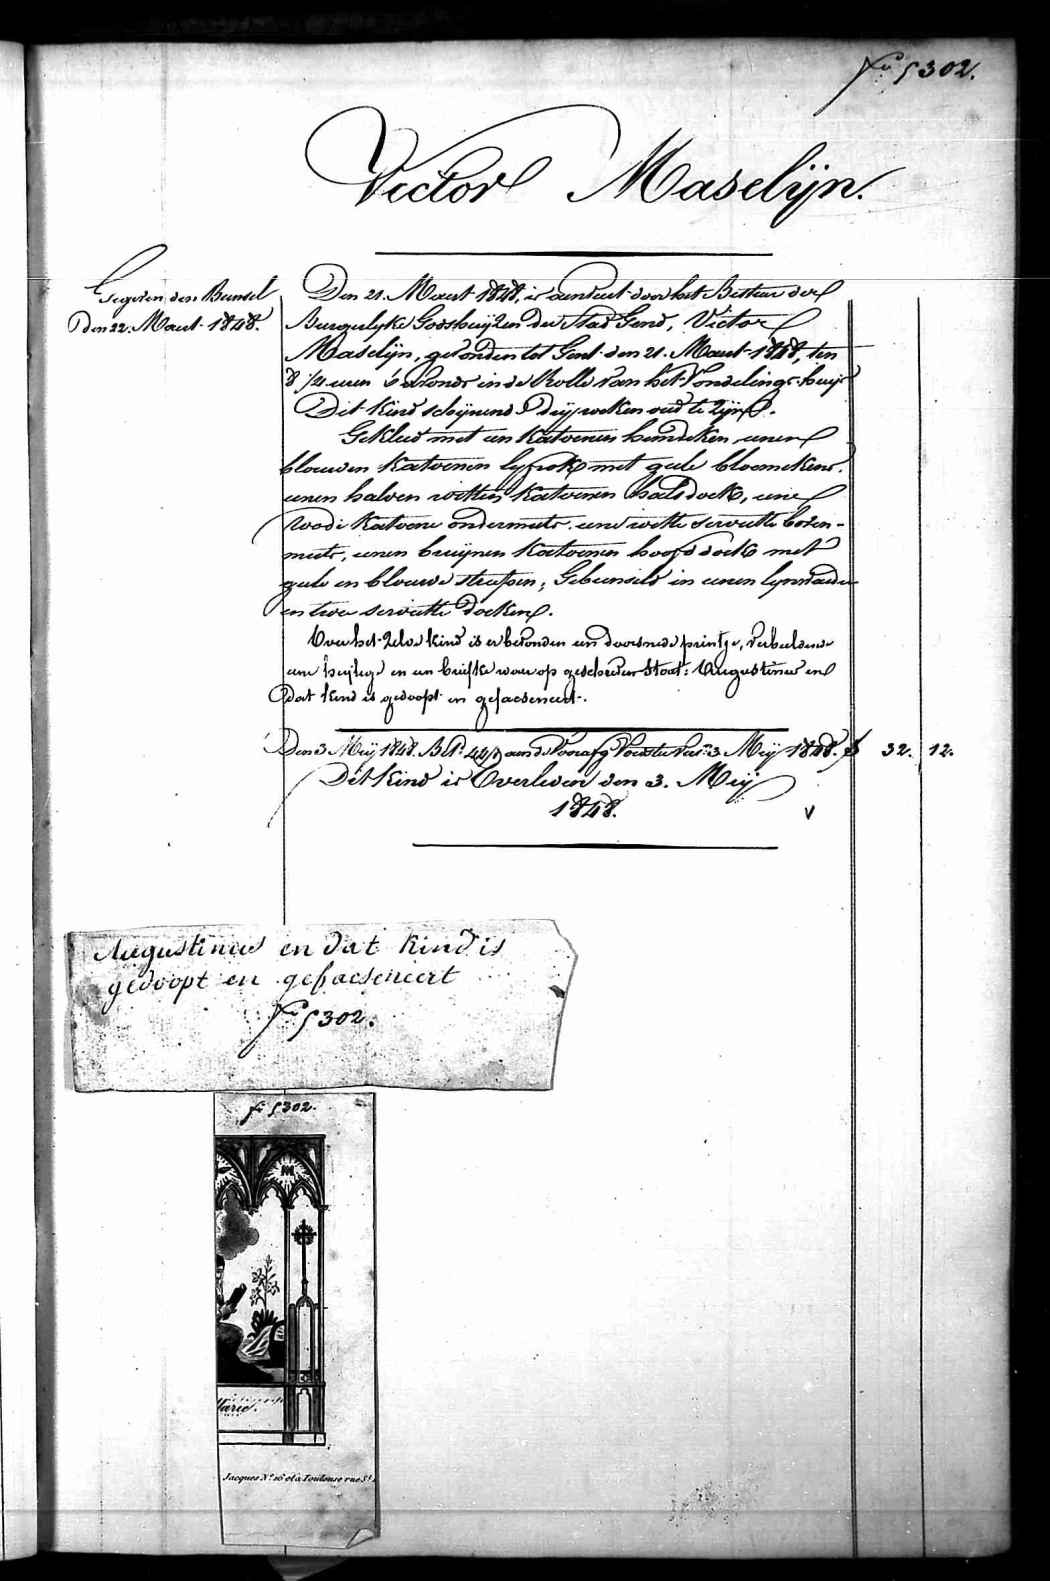 Fº 5302.
Victor Maselijn.
Gegeven den Bunsel
Den 22. Maert 1848.
Den 21. Maert 1848, is aenveert door het Bestier der
Burgelyke Godshuijzen der Stad Gend, Victor
Maselijn, gevonden tot Gent den 21. Maert 1848, ten
8 1/2 uren 's avonds in de Rolle van het Vondelings-huijs
Dit kind schijnende drij weken oud te zijn.
Gekleed met een katoenen hemdeken, eenen
blouwen katoenen lyfrok met geele bloemekens.
eenen halven witten katoenen halsdoek, eene
roode katoene ondermuts. eene witte serviette boven-
muts, eenen bruijnen katoenen hoofddoek met
geele en blouwe streepen; Gebunseld in eenen lynwaeden
en twee serviette doeken.
Over het zelve kind is er bevonden een doorsnede printje, verbeeldende
eene heijlige en een briefke waer op geschreven staet: Augustinus en
dat kind is gedoopt en gefacseneert.
Den 3 Meij 1848. Bet. aende Voorafg Voedster tot 3 Meij 1848. f 32. 12.
Dit kind is Overleden den 3. Meij
1848.
V
Augustinus en dat kind is
gedoopt en gefacseneert
Fº 5302.
Fº 5302.
M
Marie.
Jacques Nº 16 et à Toulouse rue St